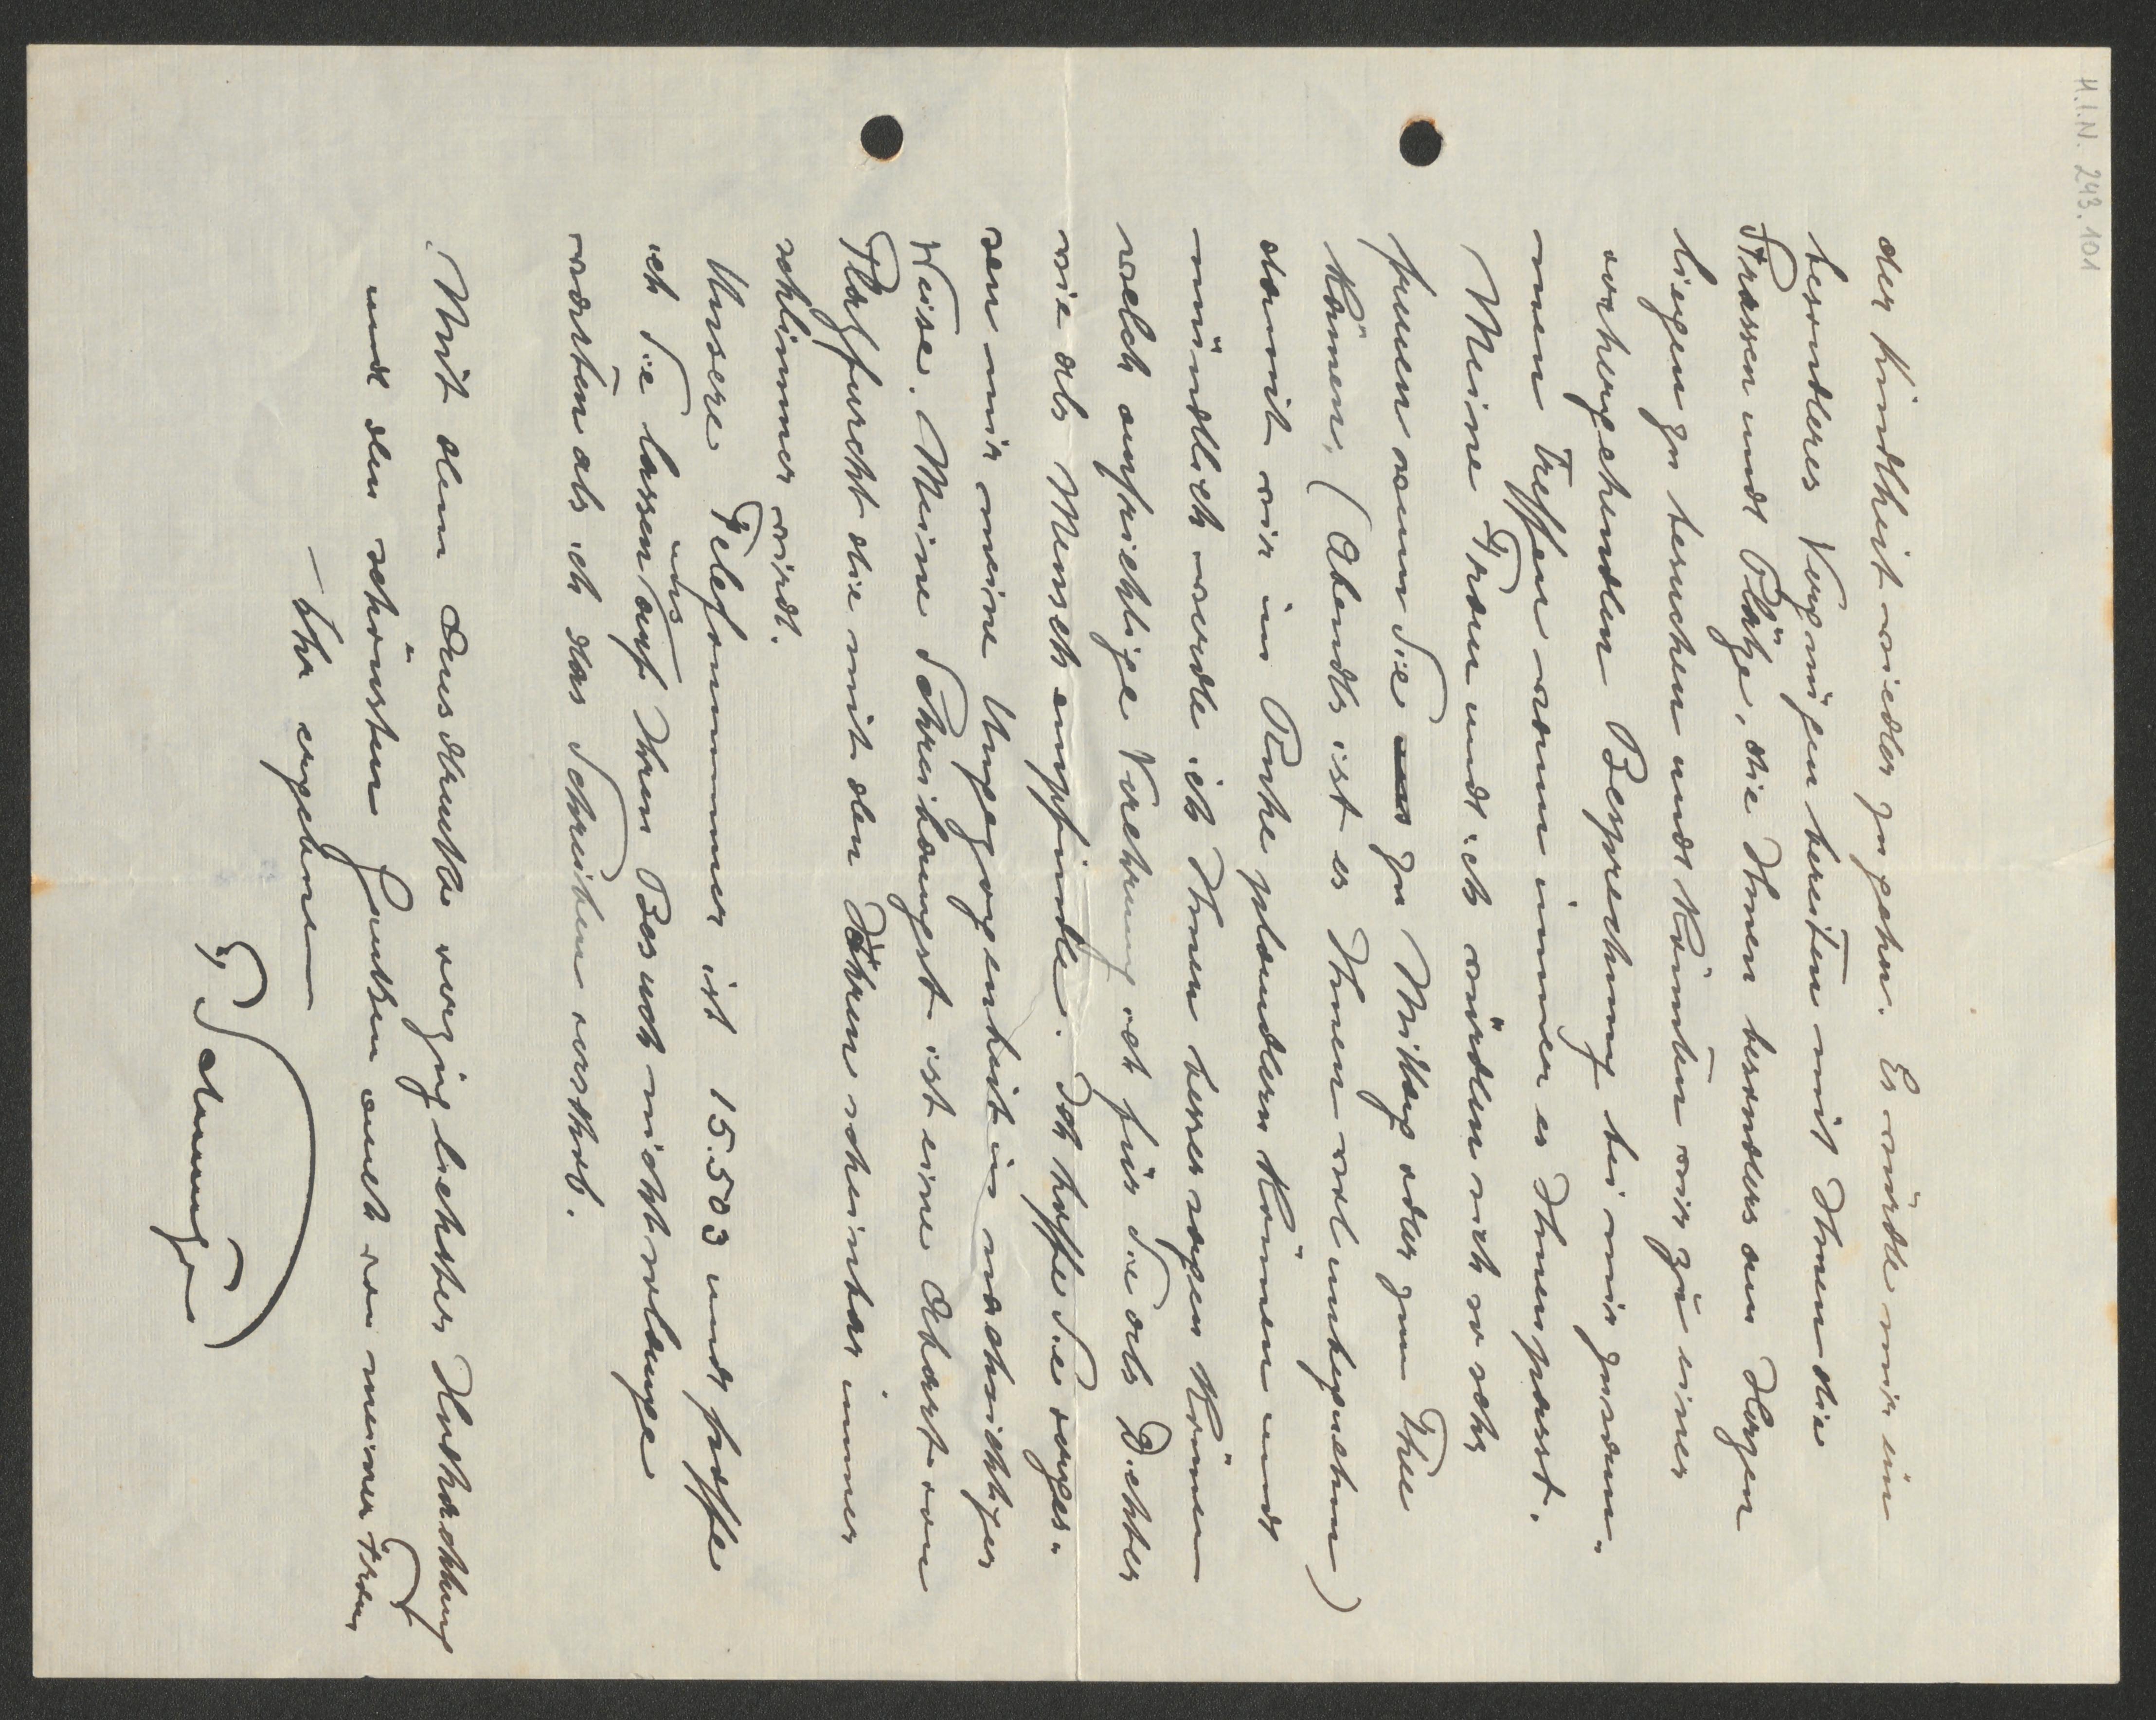 H.I.N. 243.101
der Kindheit wieder zu gehen. Es würde mir ein
besonderes Vergnügen bereiten mit Ihnen die
Strassen und Plätze, die Ihnen besonders am Herzen
liegen zu besuchen und könnten wir zu einer
vorhergehenden Besprechung bei mir zusam-
men treffen wann immer es Ihnen passt.
Meine Frau und ich würden sich so sehr
freuen wenn Sie zu Mittag oder zum Thee
kämen, (Abends ist es Ihnen wol unbequem)
damit wir in Ruhe plaudern können und
mündlich werde ich Ihnen besser sagen können
welch aufrichtige Verehrung ich für Sie als Dichter
wie als Mensch empfinde. Ich hoffe Sie verges-
sen mir meine Ungezogenheit in nachsichtiger
Weise. Meine Schreibangst ist eine Abart von
Platzfurcht die mit den Jahren scheinbar immer
schlimmer wird.
Unsere Telefonnummer ist 15.503 und hoffe
ich Sie lassen uns auf Ihren Besuch nicht solange
warten als ich das Schreiben verschob.
Mit dem Ausdrucke vorzüglichster Hochachtung
und den schönsten Grüssen auch von meiner Frau
Ihr ergebener